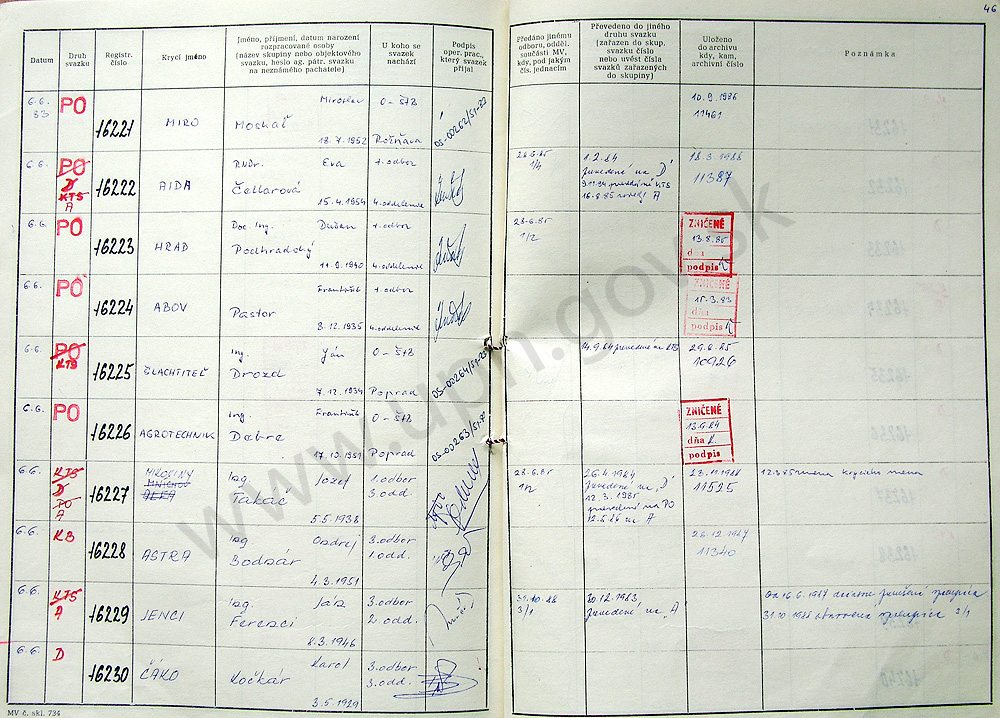 46
Datum
Druh svazku
Registr. číslo
Krycí jméno
Jméno, příjmení, datum narození
rozpracované osoby
(název skupiny nebo objektového
svazku, heslo ag. pátr. svazku
na neznámého pachatele)
U koho se
svazek
nachází
Podpis
oper. prac.,
který svazek
přijal
Předáno jinému
odboru, odděl.
součásti MV,
kdy, pod jakým
čís. jednacím
Převedeno do jiného
druhu svazku
(zařazen do skup.
svazku číslo
nebo uvést čísla
svazků zařazených
do skupiny)
Uloženo
do archivu
kdy, kam,
archivní číslo
Poznámka
6.6. 83 PO 16221 MIRO Miroslav O-ŠtB 10.9.1986
Moskáľ 05-00262/51-83 11461
18.7.1952 Rožňava
6.6. PO 16222 AIDA RNDr. Eva 1.odbor 28.6.85 1.2.84 18.3.1988
D KTS A Čellárová 1/4 zavedené na "D" 11387
15.4.1954 4.oddelenie
6.6. PO 16223 HRAD Doc. Ing. Dušan 1.odbor 28.6.85 ZNIČENÉ
Podhradský 1/2 13.8.85
11.9.1940 4.oddelenie podpis
6.6. PO 16224 ABOV František 1.odbor ZNIČENÉ
Pastor dňa
8.12.1935 4.oddelenie podpis
6.6. PO 16225 ŠĽACHTITEĽ Ing. Ján O-ŠtB 14.9.84 prevedené na KTS 29.6.85
KTS Drozd 05-00264/51-83 10926
7.12.1934 Poprad
6.6. PO 16226 AGROTECHNIK Ing. František O-ŠtB ZNIČENÉ
Dobre 05-00263/51-83 13.6.84
17.10.1951 Poprad dňa
podpis
6.6. KTS 16227 Ing. Jozef 1.odbor 28.6.85 26.4.1984 23.11.1988
D PO A Takáč 3.odd. 1/2 zavedené na "D" 11525
12.3.1985
prevedené na PO
5.5.1938 12.6.86 na A
6.6. KB 16228 ASTRA Ing. Ondrej 3.odbor 26.12.1987
Bodzár 1.odd. 11340
4.3.1951
6.6. KTS 16229 JENCI Ing. Ján 3.odbor 31.10.88 30.12.1983
A Ferenci 2.odd. 3/1 zavedené na "A" 31.10.1988 obnovená spolupráca 2/1
2.3.1946
6.6. D 16230 ČÁKO Karol 3.odbor
Kočkár 3.odd.
3.5.1929
MV č. skl. 734
www.upn.gov.sk